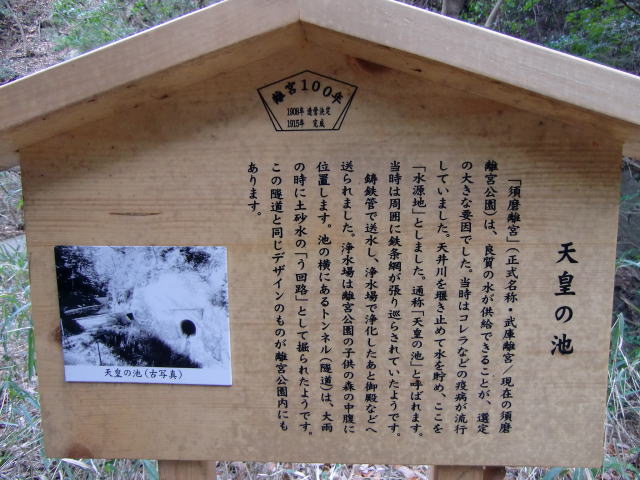 離宮100年
1908年 造営決定
1915年 完成
天皇の池
「須磨離宮」（正式名称・武庫離宮／現在の須磨
離宮公園）は、良質の水が供給できることが、選定
の大きな要因でした。当時はコレラなどの疫病が流行
していました。天井川を堰き止めて水を貯め、ここを
「水源地」としました。通称「天皇の池」と呼ばれます。
当時は周囲に鉄条網が張り巡らされていたようです。
鋳鉄管で送水し、浄水場で浄化したあと御殿などへ
送られました。浄水場は離宮公園の子供の森の中腹に
位置します。池の横にあるトンネル（隧道）は、大雨
の時に土砂水の「う回路」として掘られたようです。
この隧道と同じデザインのものが離宮公園内にも
あります。
天皇の池（古写真）